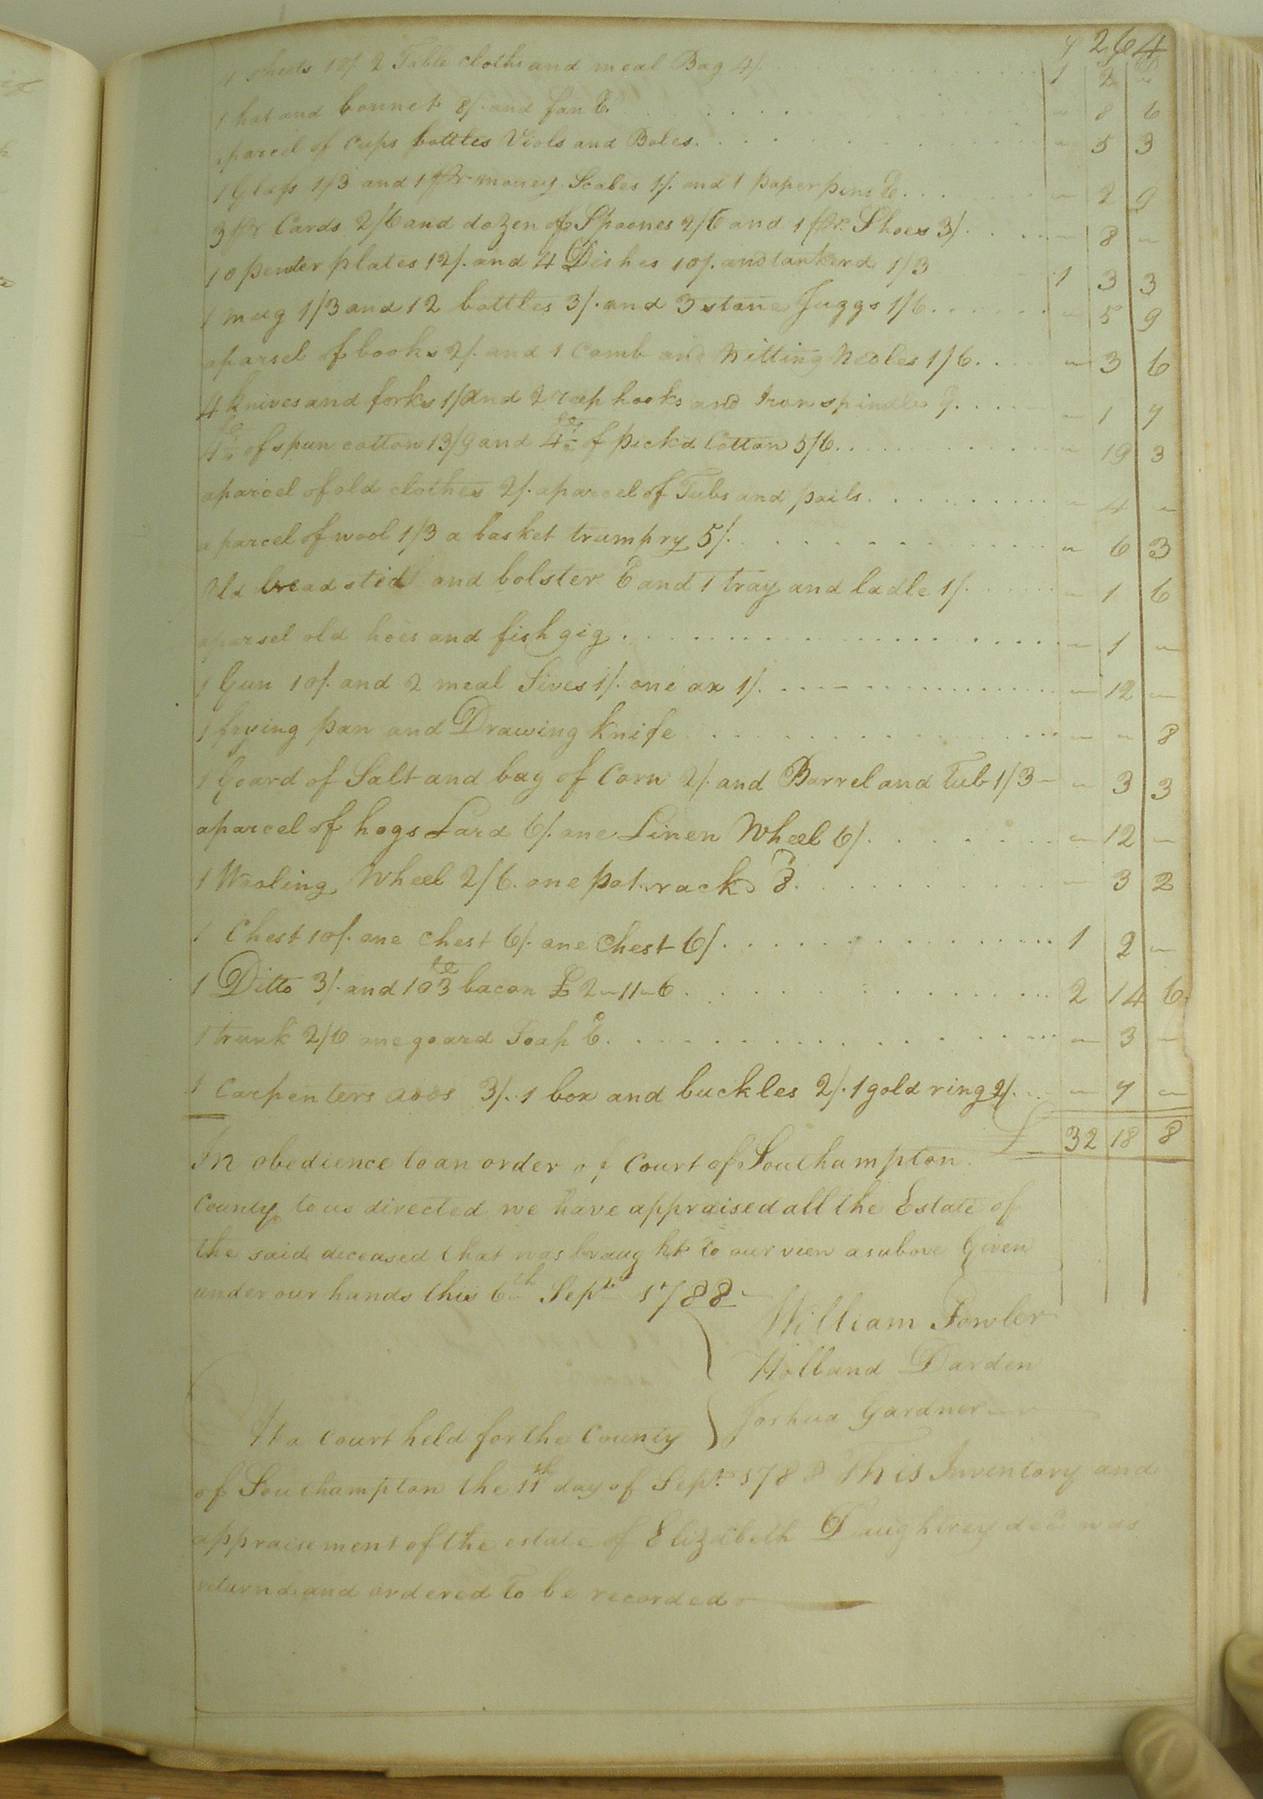 264
4 sheets 18/. 2 Table cloths and meal Bag 4/. 1 2 -
1 hat and bonnet 8/. and fan 6. - 8 6
aparcel of Cups bottles Viols and Boles. - 5 3
1 Glass 1/3 and 1 pr money Scales 1/. and 1 paper pins 6. - 2 9
3 pr Cards 2/6 and dozen of Spoones 2/6 and 1 pr Shoes 3/. - 8 -
10 pewter plates 12/. and 4 Dishes 10/. and tankerd 1/3 1 3 3
1 mug 1/3 and 12 bottles 3/. and 3 stone Juggs 1/6. - 5 9
aparsel of books 2/. and 1 Comb and Nitting Nedles 1/6. - 3 6
4 knives and forks 1/. and 2 reap hooks and Iron spindle 7. - 1 7
of spun cotton 13/9 and 4 of pickd Cotton 5/6. - 19 3
aparcel of old clothes 2/. aparcel of Tubs and pails. - 4 -
a parcel of wool 1/3 a basket trumpry 5/. - 6 3
Old breadstid and bolster 6 and 1 tray and ladle 1/. - 1 6
aparsel old hoes and fish gig. - 1 -
1 Gun 10/. and 2 meal Sives 1/. one ax 1/. - 12 -
1 frying pan and Drawing knife - - 8
1 Goard of Salt and bag of Corn 2/. and Barrel and Tub 1/3 - - 3 3
aparcel of hogs Lard 6/. one Linen Wheel 6/. - 12 -
1 Wooling Wheel 2/6. one pot rack 8. - 3 2
1 Chest 10/. one chest 6/. one Chest 6/. 1 2 -
1 Ditto 3/. and 103 lb bacon £ 2-11-6. 2 14 6
1 trunk 2/6 one goard Soap 6. - 3 -
1 Carpenters adds 3/. 1 box and buckles 2/. 1 gold ring 2/. - 7 -
£ 32 18 8
In obedience to an order of Court of Southampton
County to us directed we have appraised all the Estate of
the said deceased that was braught to our view as above Given
under our hands this 6th Sept 1788 -
William Fowler
Holland Darden
Joshua Gardner
At a Court held for the County
of Southampton the 11th day of Sept. 1788 This Inventory and
appraisement of the estate of Elizabeth Daughtrey decd was
returnd and ordered to be recorded